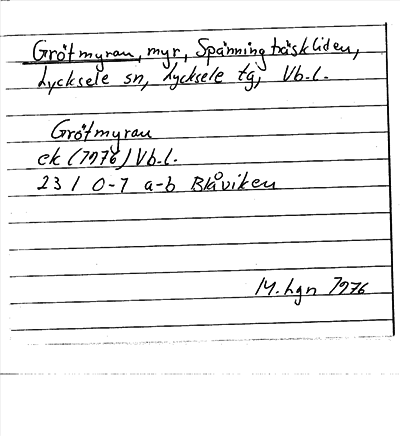 Grötmyran, myr, Spänningträskliden,
Lycksele sn, Lycksele tg, Vb.l.
Grötmyran
ek (1976) Vb.l.
23 I 0-7 a-b Blåviken
M. Lgn 1976